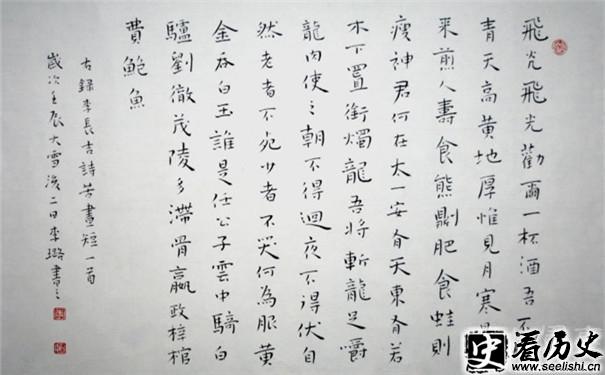 飛光飛光勸爾一杯酒吾不
青天高黃地厚惟見月寒
来煎人壽食熊則肥食蛙則
瘦神君何在太一安有天東有若
木下置銜燭龍吾將斬龍足嚼
龍肉使之朝不得迴夜不得伏自
然老者不死少者不哭何為服黃
金吞白玉誰是任公子雲中騎白
驢劉徹茂陵多滯骨嬴政梓棺
費鮑魚
右錄李長吉詩苦晝短一首
歲次壬辰大雪後二日李璐書之
史 看历史
www.seelishi.cn